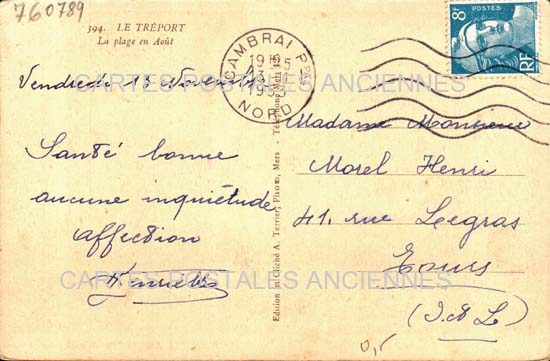 760789
394. LE TRÉPORT
La plage en Août
CAMBRAI PPAL
NORD
8F
POSTES
RF
Vendredi 13 Novembre
CARTES POSTALES ANCIENNES
Santé bonne
aucune inquiétude
affection
Edition et Cliché A. Terrier, Photo, Mers - Téléphone Mers
Madame Monsieur
Morel Henri
41, rue Legras
Tours
(I. & L)
CARTES POSTALES ANCIENNES
0,5